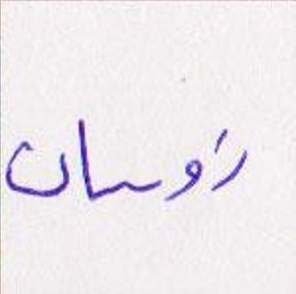 زوسان